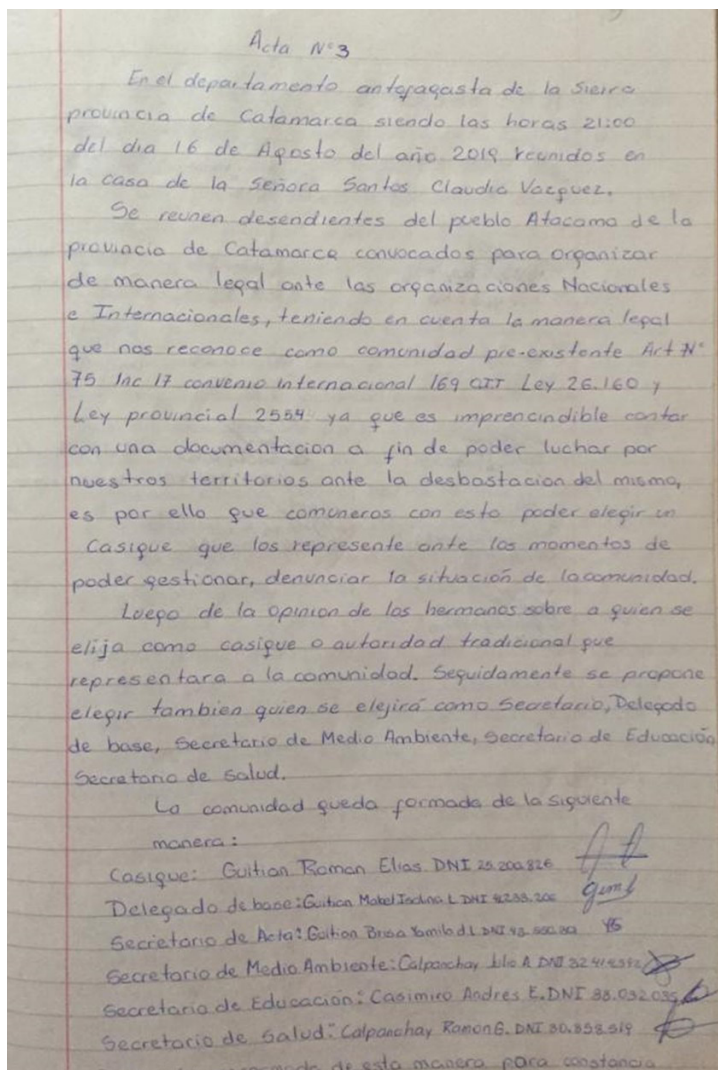 Acta N°3
En el departamento antofagasta de la sierra
provincia de Catamarca siendo las horas 21:00
del dia 16 de Agosto del año 2019 reunidos en
la casa de la Señora Santos Claudia Vazquez.
Se reunen desendientes del pueblo Atacama de la
provincia de Catamarca convocados para organizar
de manera legal ante las organizaciones Nacionales
e Internacionales, teniendo en cuenta la manera legal
que nos reconoce como comunidad pre-existente Art N°
75 Inc 17 convenio internacional 169 OIT Ley 26.160 y
Ley provincial 2554 ya que es imprencindible contar
con una documentacion a fin de poder luchar por
nuestros territorios ante la desbastacion del mismo,
es por ello que comuneros con esto poder elegir un
Casique que los represente ante los momentos de
poder gestionar, denunciar la situación de la comunidad.
Luego de la opinion de los hermanos sobre a quien se
elija como casique o autoridad tradicional que
representara a la comunidad. Seguidamente se propone
elegir tambien quien se elejirá como Secretario, Delegado
de base, Secretario de Medio Ambiente, Secretario de Educación
Secretario de Salud.
La comunidad queda formada de la siguiente
manera:
Casique: Guitian Roman Elias DNI 25.200.826
Delegado de base: Guitian Mabel L DNI
Secretario de Acta: Guitian Brisa Yamila d.L DNI
Secretario de Medio Ambiente: Calpanchay A DNI
Secretario de Educación: Casimiro Andres E. DNI 38.032.039
Secretario de Salud: Calpanchay Ramon G. DNI 30.858.519
de esta manera para constancia